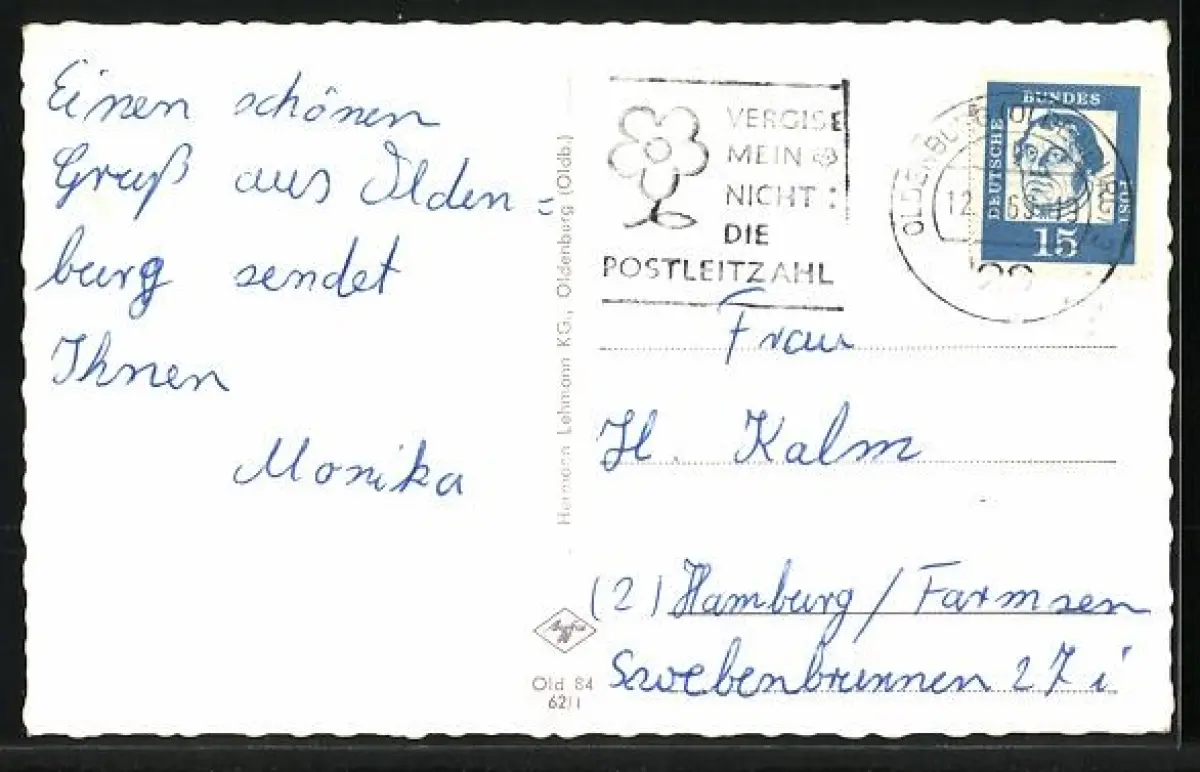 Einen schönen
Gruß aus Olden =
burg sendet
Ihnen
Monika
Hermann Lehmann KG., Oldenburg (Oldb.)
VERGISS
MEIN
NICHT :
DIE
POSTLEITZAHL
DEUTSCHE
BUNDES
POST
15
Frau
H. Kalm
(2) Hamburg / Farmsen
Swebenbrunnen 27 i
Agfa
Old 84
62/1